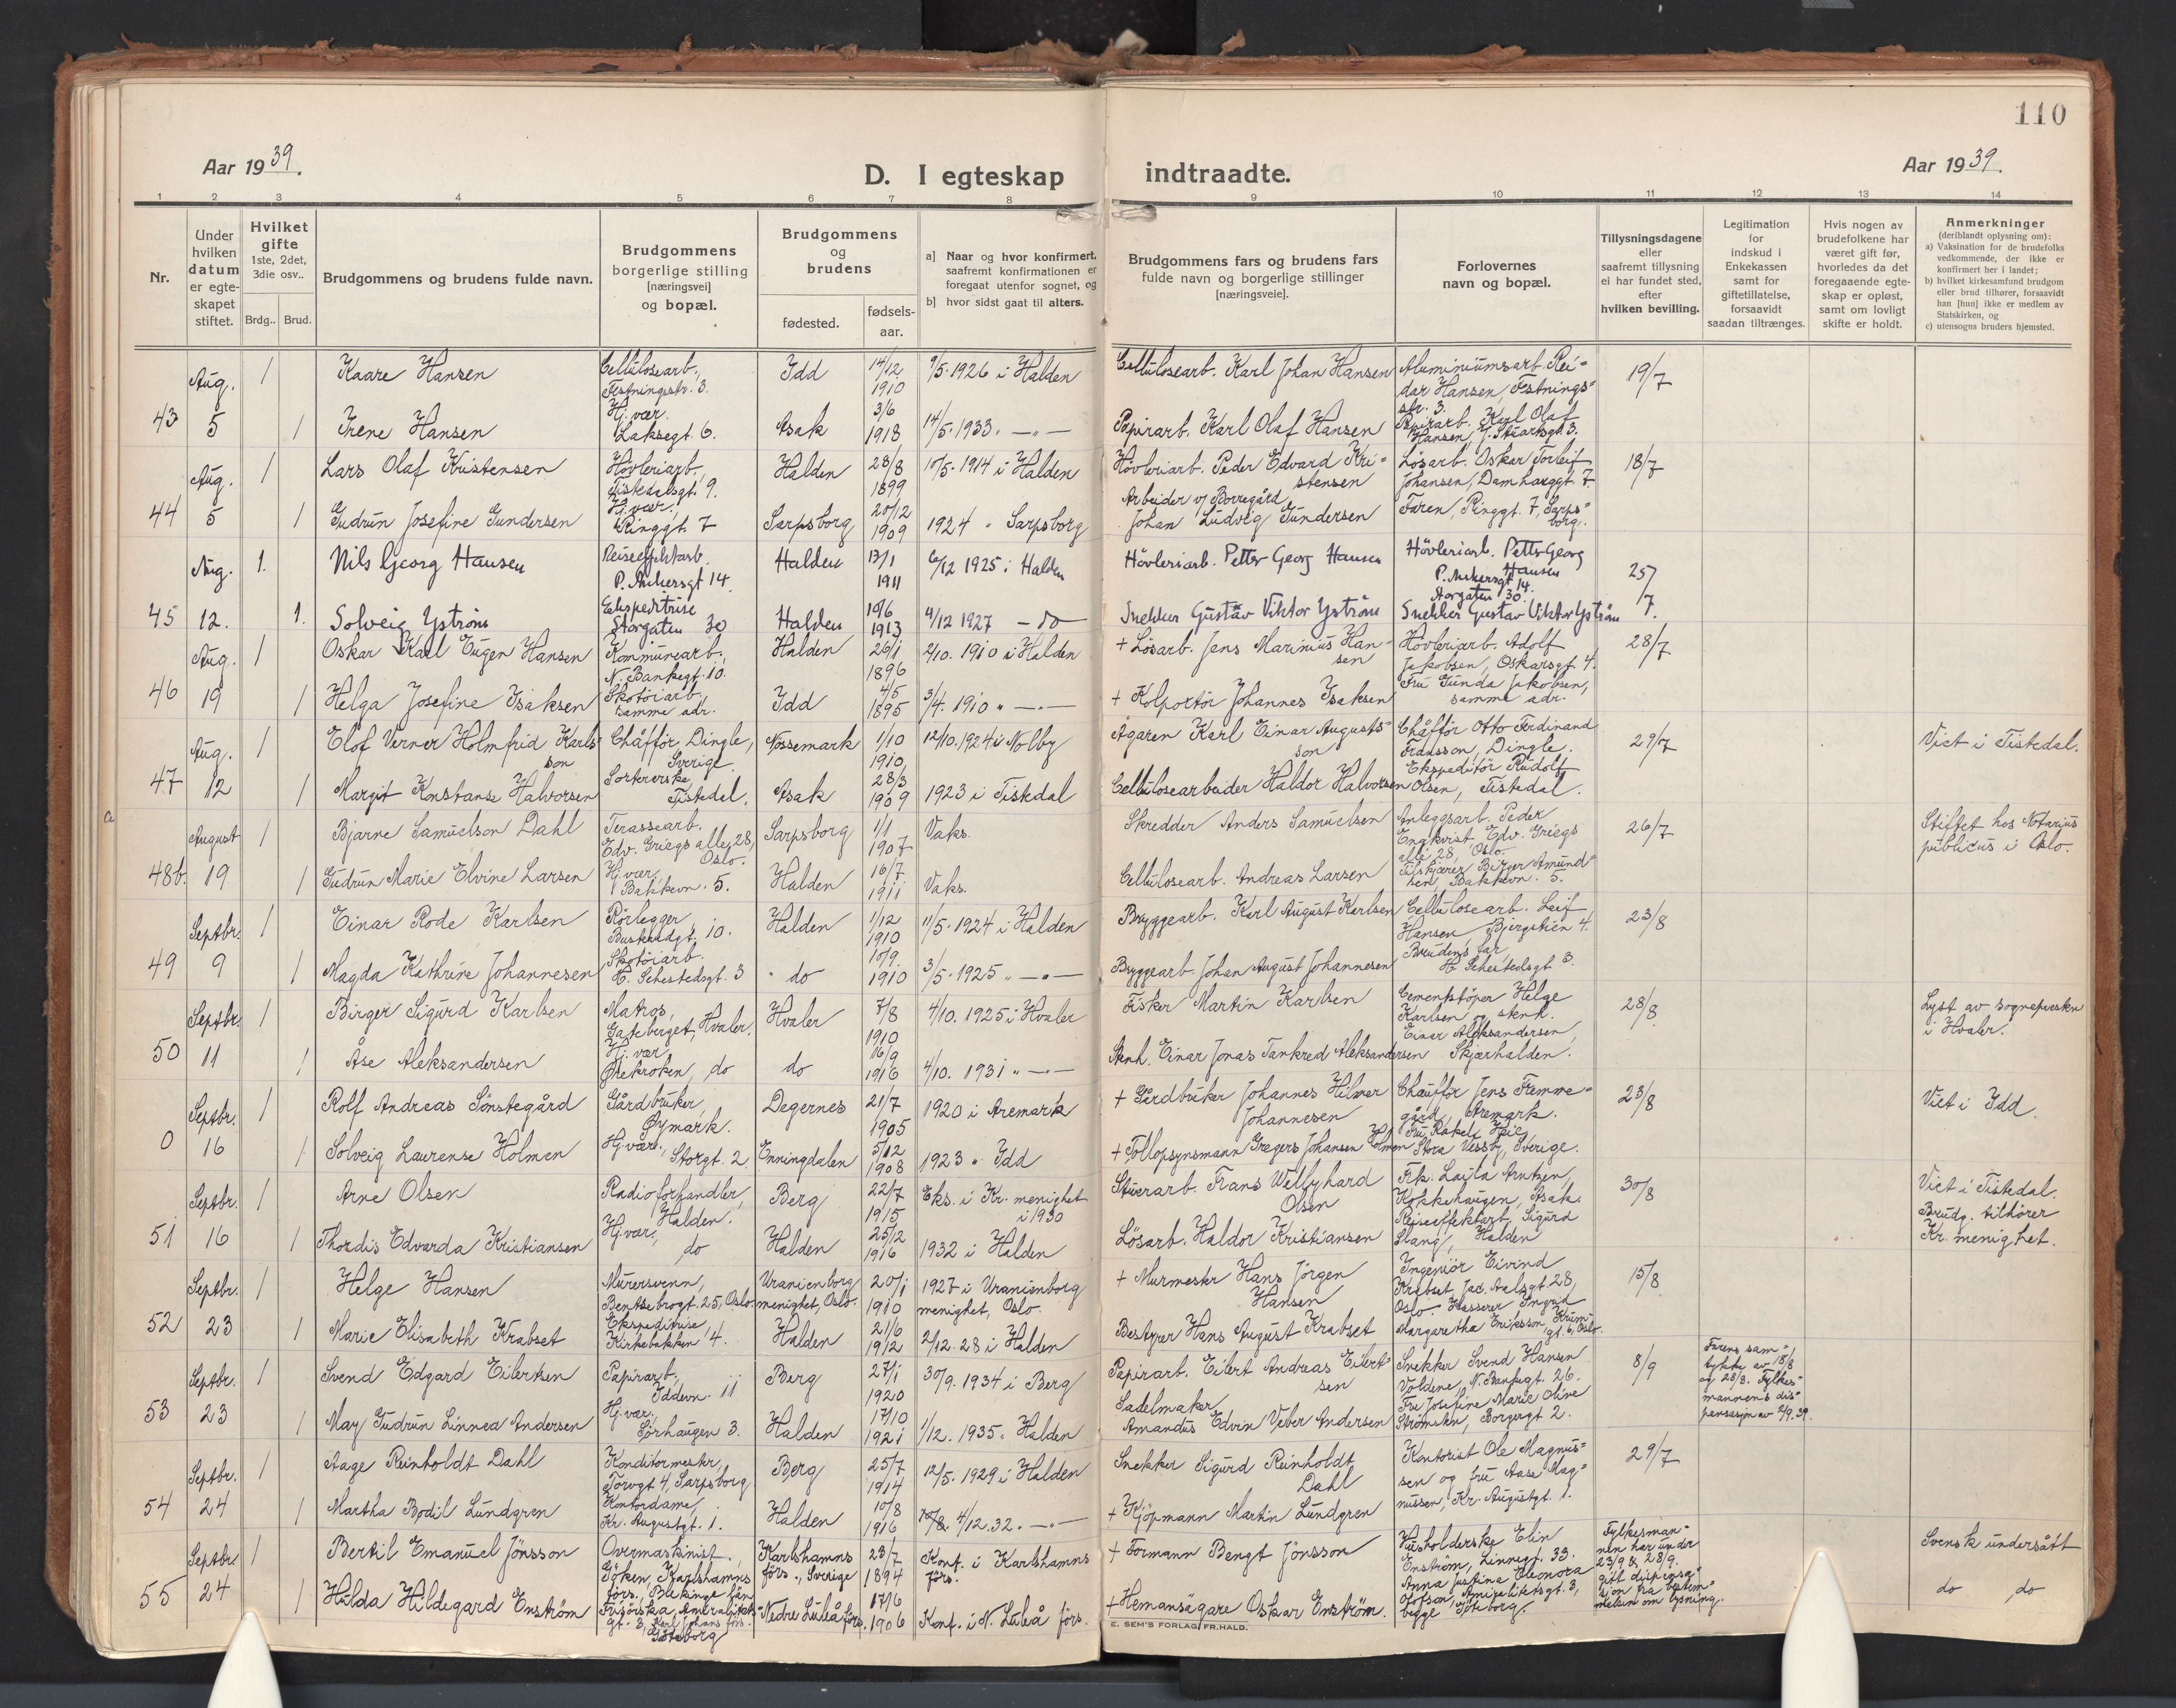 110
Aar 1939.
D. I egteskap indtraadte.
Aar 1939.
1 2 3 4 5 6 7 8 9 10 11 12 13 14
Nr.
Under hvilken datum er egte-skapet stiftet.
Hvilket gifte 1ste, 2det, 3die osv..
Brdg.. Brud.
Brudgommens og brudens fulde navn.
Brudgommens borgerlige stilling [næringsvei] og bopæl.
Brudgommens og brudens
fødested.
fødsels-aar.
a] Naar og hvor konfirmert, saafremt konfirmationen er foregaat utenfor sognet, og
b] hvor sidst gaat til alters.
Brudgommens fars og brudens fars fulde navn og borgerlige stillinger [næringsveie].
Forlovernes navn og bopæl.
Tillysningsdagene eller saafremt tillysning ei har fundet sted, efter hvilken bevilling.
Legitimation for indskud i Enkekassen samt for giftetillatelse, forsaavidt saadan tiltrænges.
Hvis nogen av brudefolkene har været gift før, hvorledes da det foregaaende egte-skap er opløst, samt om lovligt skifte er holdt.
Anmerkninger (deriblandt oplysning om):
a) Vaksination for de brudefolks vedkommende, der ikke er konfirmert her i landet;
b) hvilket kirkesamfund brudgom eller brud tilhører, forsaavidt han [hun] ikke er medlem av Statskirken, og
c) utensogns bruders hjemsted.
Aug. 1 Kaare Hansen Cellulosearb., Festningsstr. 3. Idd 14/12 1910 9/5. 1926 i Halden Cellulosearb. Karl Johan Hansen Aluminiumsarb. Rei=dar Hansen, Festnings=str. 3. 19/7
43 5 1 Irene Hansen Hj. vær. Laksegt. 6. Asak 3/6 1918 14/5. 1933. —"— Papirarb. Karl Olaf Hansen Papirarb. Karl Olaf Hansen, J. Stuartsgt. 3.
Aug. 1 Lars Olaf Kristensen Høvleriarb., Tistedalsgt. 9. Halden 28/8 1899 10/5. 1914 i Halden Høvleriarb. Peder Edvard Kri=stensen Løsarb. Oskar Torleif Johansen, Damhauggt. 7 18/7
44 5 1 Gudrun Josefine Gundersen Hj. vær., Ringgt. 7 Sarpsborg 20/12 1909 1924 " Sarpsborg Arbeider v/ Borregård Johan Ludvig Gundersen Faren, Ringgt. 7, Sarps=borg.
Aug. 1. Nils Georg Hansen Reiseeffektarb. P. Ankersgt 14. Halden 13/1 1911 6/12 1925 i Halden Hövleriarb. Petter Georg Hansen Hövleriarb. Petter Georg Hansen P. Ankersgt 14. 25/7.
45 12. 1. Solveig Yström Ekspeditrise Storgaten 30 Halden 19/6 1913 4/12 1927 — do — Snekker Gustav Viktor Yström Storgaten 30. Snekker Gustav Viktor Yström
Aug. 1 Oskar Karl Eugen Hansen Kommunearb., N. Bankegt. 10. Halden 26/1 1896 2/10. 1910 i Halden + Løsarb. Jens Marinius Han=sen Høvleriarb. Adolf Jakobsen, Oskarsgt. 4. 28/7
46 19 1 Helga Josefine Isaksen Skotøiarb., samme adr. Idd 4/5 1895 3/4. 1910 " —"— + Kolportør Johannes Isaksen Fru Gunda Jakobsen, samme adr.
Aug. 1 Elof Verner Holmfrid Karls=son Chåffør, Dingle, Sverige. Nössemark 1/10 1910 12/10. 1924 i Nolby Ågaren Karl Einar Augusts=son Chåffør Otto Ferdinand Fransson, Dingle. 29/7 Viet i Tistedal.
47 12 1 Margit Konstanse Halvorsen Sorterske, Tistedal. Asak 28/3 1909 1923 i Tistedal Cellulosearbeider Haldor Halvorsen Ekspeditør Rudolf Olsen, Tistedal.
August 1 Bjarne Samuelson Dahl Terassearb. Edv. Griegs alle 28, Oslo. Sarpsborg 1/1 1907 Vaks. Skredder Anders Samuelsen Anleggsarb. Peder Engkvist, Edv. Griegs alle 28, Oslo. 26/7 Stiftet hos Notarius publicus i Oslo.
48b. 19 1 Gudrun Marie Elvine Larsen Hj. vær., Bakkevn. 5. Halden 16/7 1911 Vaks. Cellulosearb. Andreas Larsen Tilskjærer Birger Amund=sen, Bakkevn. 5.
Septbr. 1 Einar Rode Karlsen Rørlegger, Buskendgt. 10. Halden 1/12 1910 11/5. 1924 i Halden Bryggearb. Karl August Karlsen Cellulosearb. Leif Hansen, Bjergstien 4. 23/8
49 9 1 Magda Kathrine Johannesen Skotøiarb. H. Sehestedsgt. 3 do 10/9. 1910 3/5. 1925 " —"— Bryggearb. Johan August Johannesen Brudens far, H. Sehestedsgt. 3.
Septbr. 1 Birger Sigurd Karlsen Matros, Gateberget, Hvaler. Hvaler 7/8 1910 4/10. 1925 i Hvaler Fisker Martin Karlsen Cementstøper Helge Karlsen 28/8 Lyst av sognepresten i Hvaler.
50 11 1 Åse Aleksandersen Hj. vær Ørekroken, do do 16/9 1916 4/10. 1931 " —"— Stenh. Einar Jonas Tankred Aleksandersen stenh. Einar Aleksandersen, Skjærhalden.
Septbr. 1 Rolf Andreas Sønstegård Gårdbruker, Øymark. Degernes 21/7 1905 1920 i Aremark + Gårdbruker Johannes Hilmer Johannesen Chauffør Jens Fremme=gård, Aremark. 23/8 Viet i Idd.
0 16 1 Solveig Laurense Holmen Hj. vær., Storgt. 2 Enningdalen 5/12 1908 1923 " Idd + Tollopsynsmann Gregers Johansen Holmen Fru Rakel Stora Vassby, Sverige.
Septbr. 1 Arne Olsen Radioforhandler, Halden. Berg 22/7 1915 Eks. i Kr. menighet i 1930 Stuerarb. Frans Wellyhard Olsen Frk. Laila Arntzen, Kokkehaugen, Asak. 30/8 Viet i Tistedal. Brudg. tilhører Kr. menighet.
51 16 1 Thordis Edvarda Kristiansen Hj. vær., do Halden 25/2 1916 1932 i Halden Løsarb. Haldor Kristiansen Reiseeffektarb. Sigurd Slang, Halden
Septbr. 1 Helge Hansen Murersvenn, Bentsebrogt. 25, Oslo. Uranienborg menighet, Oslo. 20/1 1910 1927 i Uranienborg menighet, Oslo. + Murmester Hans Jörgen Hansen Ingeniør Eivind Krabset, Jac. Aalsgt 28, Oslo. 15/8
52 23 1 Marie Elisabeth Krabset Ekspeditrise, Kirkebakken 4. Halden 21/6 1912 2/12. 28 i Halden Bestyrer Hans August Krabset Kasserer Ingrid Margaretha Eriksson, gt. 6, Oslo.
Septbr. 1 Svend Edgard Eilertsen Papirarb., Iddevn. 11 Berg 27/1 1920 30/9. 1934 i Berg Papirarb. Eilert Andreas Eilert=sen Snekker Svend Hansen Voldene, N. Bankegt. 26. 8/9 Farens sam=tykke av 18/8 og 28/8. Fylkes=mannens dis=pensasjon av 2/9. 39.
53 23 1 May Gudrun Linnea Andersen Hj. vær., Sørhaugen 3. Halden 17/10 1921 1/12. 1935 " Halden Sadelmaker Amandus Edvin Veber Andersen Fru Josefine Marie Oline Strømsten, Borgergt 2.
Septbr. 1 Aage Reinholdt Dahl Konditormester, Torvgt 4, Sarpsborg Berg 25/7 1914 12/5. 1929 i Halden Snekker Sigurd Reinholdt Dahl Kontorist Ole Magnus=sen og fru Aase Mag=nussen, Kr. Augustgt. 1. 29/7
54 24 1 Martha Bodil Lundgren Kontordame, Kr. Augustgt. 1. Halden 10/8 1916 4/12. 32. —"— + Kjøpmann Martin Lundgren
Septbr. 1 Bertil Emanuel Jönsson Overmaskinist, Göken, Karlshamns förs., Blekinge län Karlshamns förs., Sverige 28/7 1894 Konf. i Karlshamns förs. + Formann Bengt Jönsson Husholderske Elin Enström, Linnegt. 33. Fylkesman=nen har under 23/9 & 28/9. gitt dispensa=sjon fra bestem=melsen om lysning. Svensk undersått
55 24 1 Hulda Hildegard Enström Frisörska, Amiralitets=gt. 3, Karl Johans förs. Göteborg Nedre Luleå förs. 17/6 1906 Konf. i N. Luleå förs. + Hemansägare Oskar Enström. Anna Justina Eleonora Olofson, Amiralitetsgt. 3, begge Göteborg. do do
E. SEM'S FORLAG, FR.HALD.